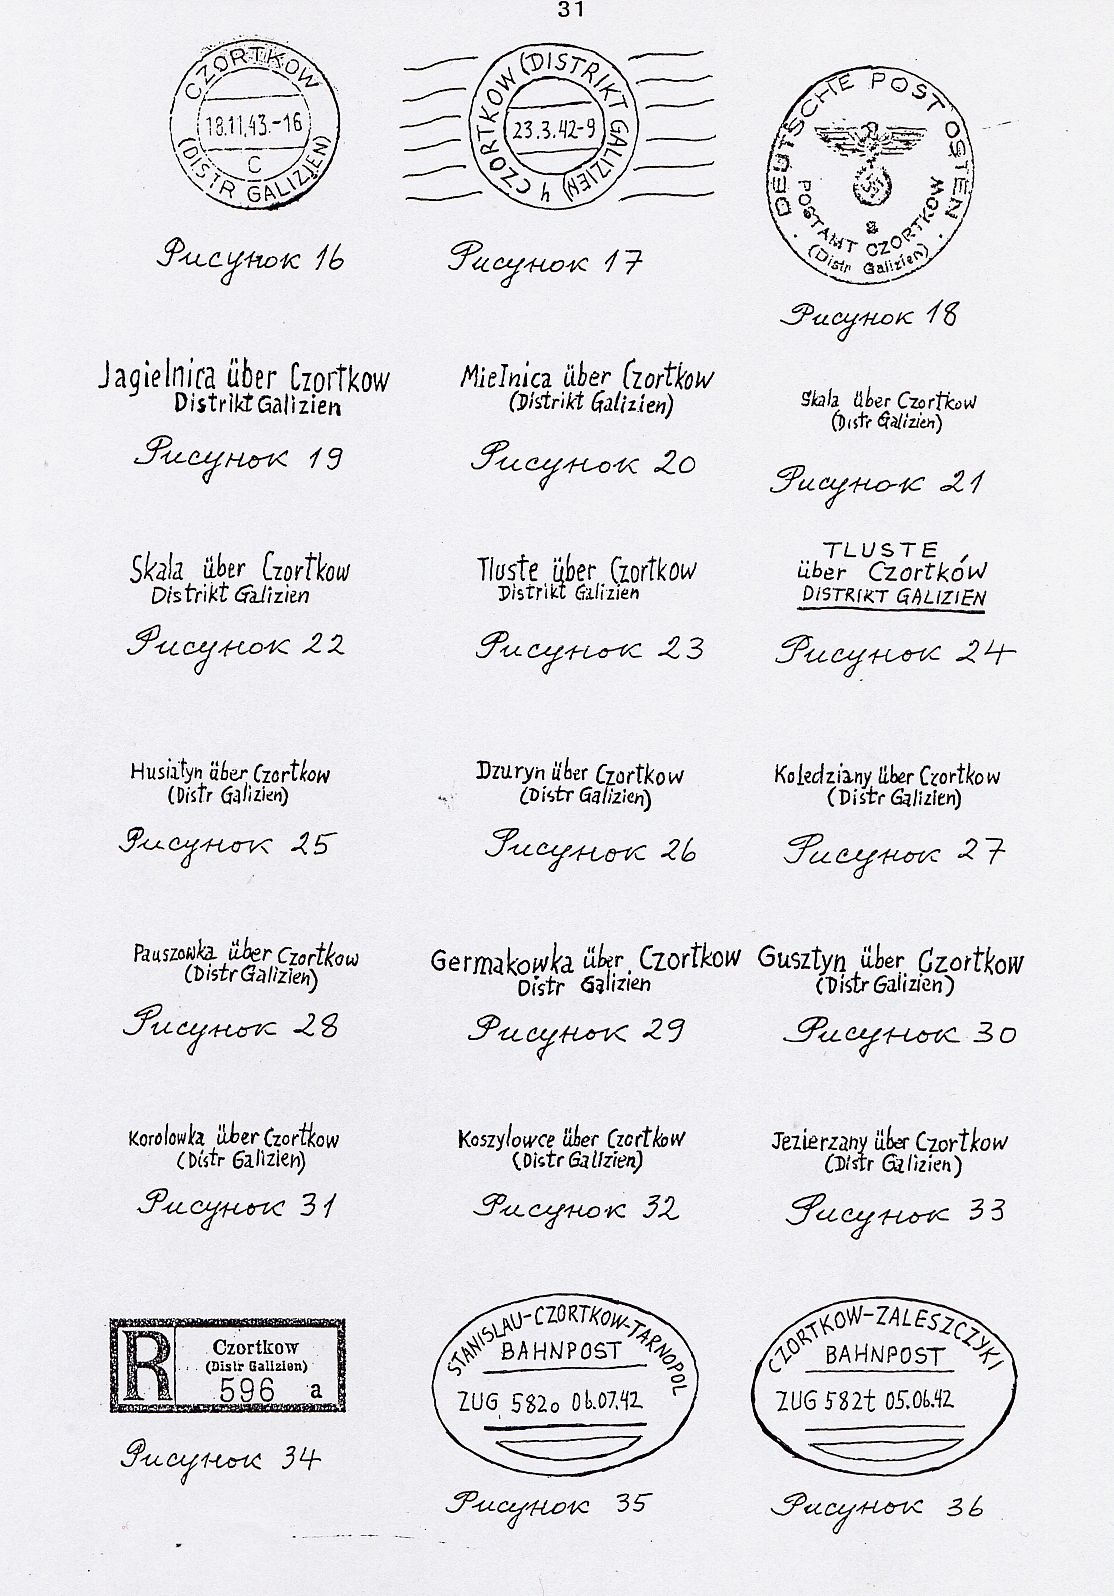 31
CZORTKOW
18.11.43.-16
C
(DISTR GALIZIEN)
CZORTKOW (DISTRIKT GALIZIEN) 4
23.3.42-9
DEUTSCHE POST OSTEN
a
POSTAMT CZORTKOW
(Distr Galizien)
Рисунок 16
Рисунок 17
Рисунок 18
Jagielnica über Czortkow
Distrikt Galizien
Рисунок 19
Mielnica über Czortkow
(Distrikt Galizien)
Рисунок 20
Skala über Czortkow
(Distr Galizien)
Рисунок 21
Skala über Czortkow
Distrikt Galizien
Рисунок 22
Tluste über Czortkow
Distrikt Galizien
Рисунок 23
TLUSTE
über Czortków
DISTRIKT GALIZIEN
Рисунок 24
Husiatyn über Czortkow
(Distr Galizien)
Рисунок 25
Dzuryn über Czortkow
(Distr Galizien)
Рисунок 26
Koledziany über Czortkow
(Distr Galizien)
Рисунок 27
Pauszowka über Czortkow
(Distr Galizien)
Рисунок 28
Germakowka über Czortkow
Distr Galizien
Рисунок 29
Gusztyn über Czortkow
(Distr Galizien)
Рисунок 30
Korolowka über Czortkow
(Distr Galizien)
Рисунок 31
Koszylowce über Czortkow
(Distr Galizien)
Рисунок 32
Jezierzany über Czortkow
(Distr Galizien)
Рисунок 33
R
Czortkow
(Distr Galizien)
596 a
Рисунок 34
STANISLAU-CZORTKOW-TARNOPOL
BAHNPOST
ZUG 5820 06.07.42
Рисунок 35
CZORTKOW-ZALESZCZYKI
BAHNPOST
ZUG 582t 05.06.42
Рисунок 36